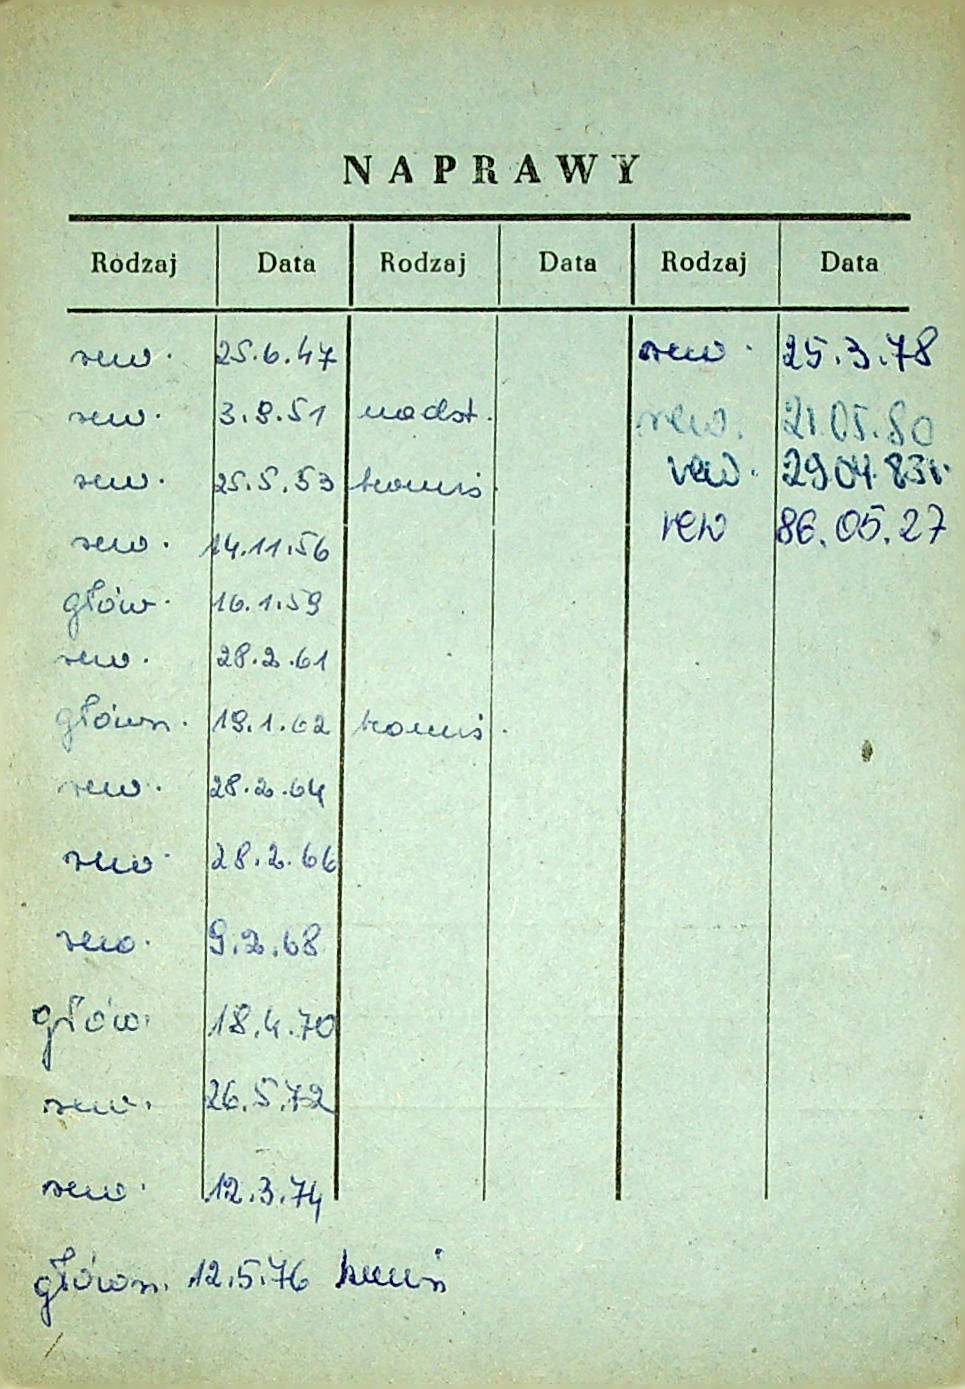 NAPRAWY
Rodzaj Data Rodzaj Data Rodzaj Data
rew. 25.6.47 rew. 25.3.78
rew. 3.9.51 nadst. rew. 21.05.80
rew. 25.5.53 rew. 29.04.83r.
rew. 14.11.56 rew 86.05.27
głów. 16.1.59
rew. 28.2.61
główn. 19.1.62
rew. 28.2.64
rew. 28.2.66
rew. 9.2.68
głów. 18.4.70
rew. 26.5.72
rew. 12.3.74
główn. 12.5.76